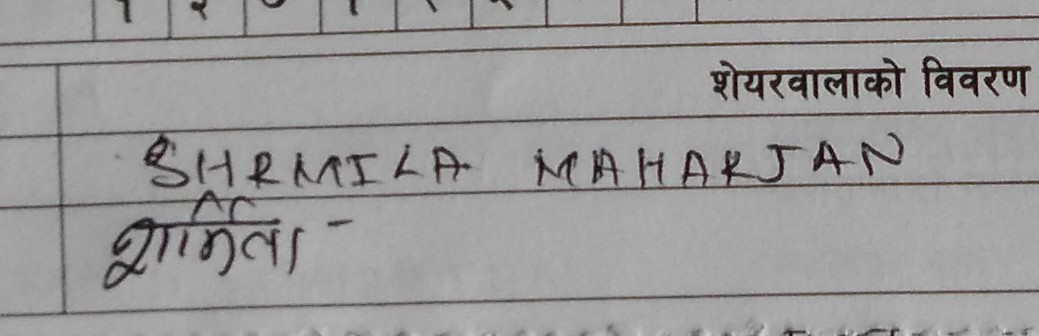 शेयरवालाको विवरण
SHRMILA MAHARJAN
शर्मिला